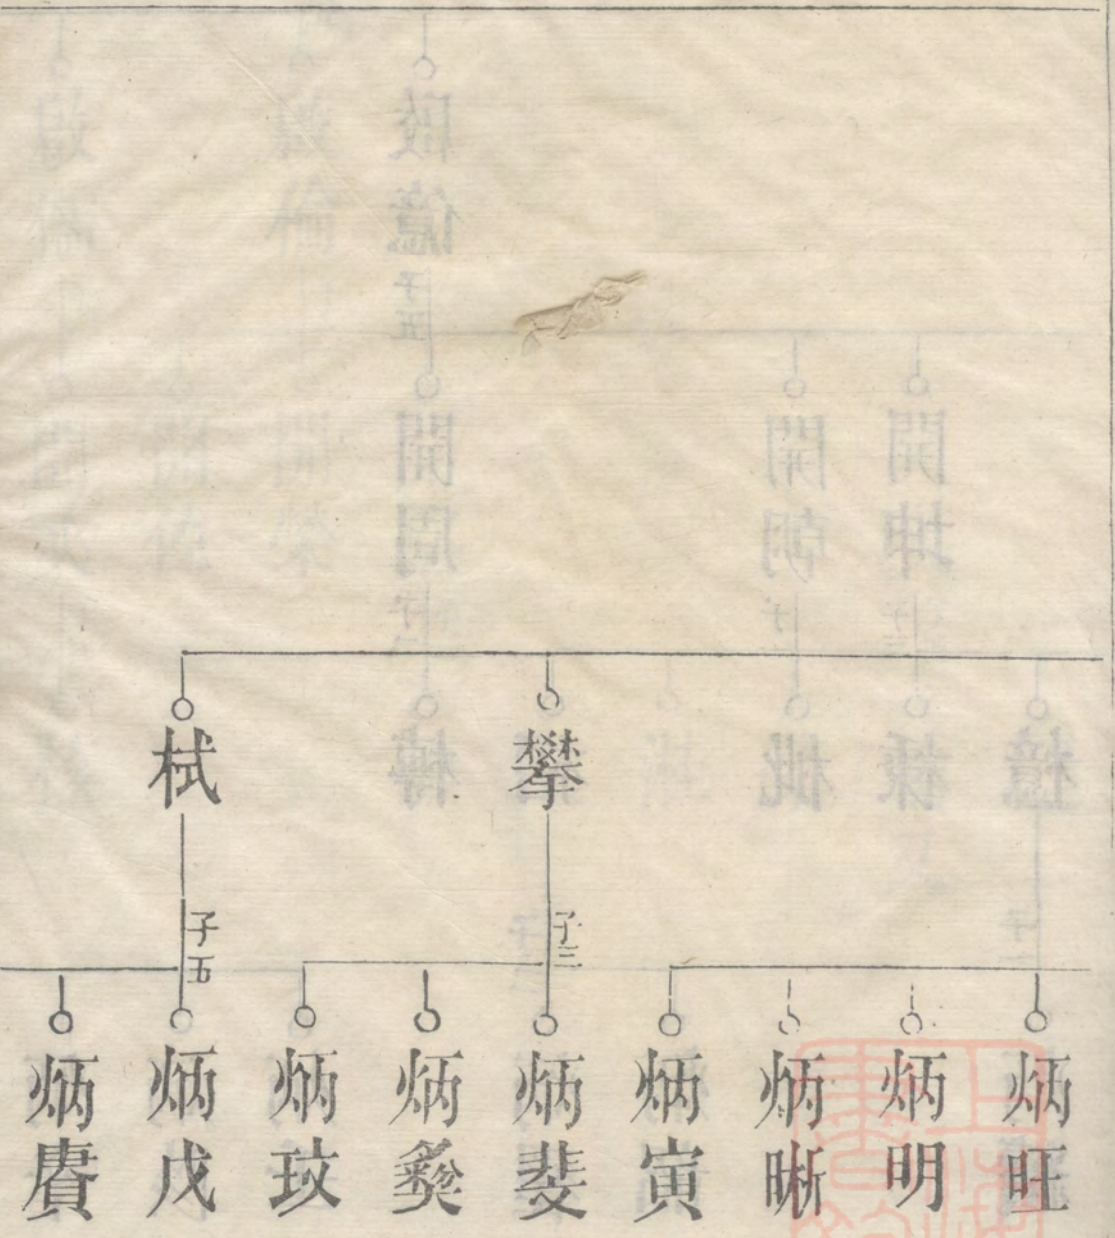 攀
子三
栻
子五
炳旺
炳明
炳晰
炳寅
炳斐
炳彝
炳玟
炳戊
炳賡